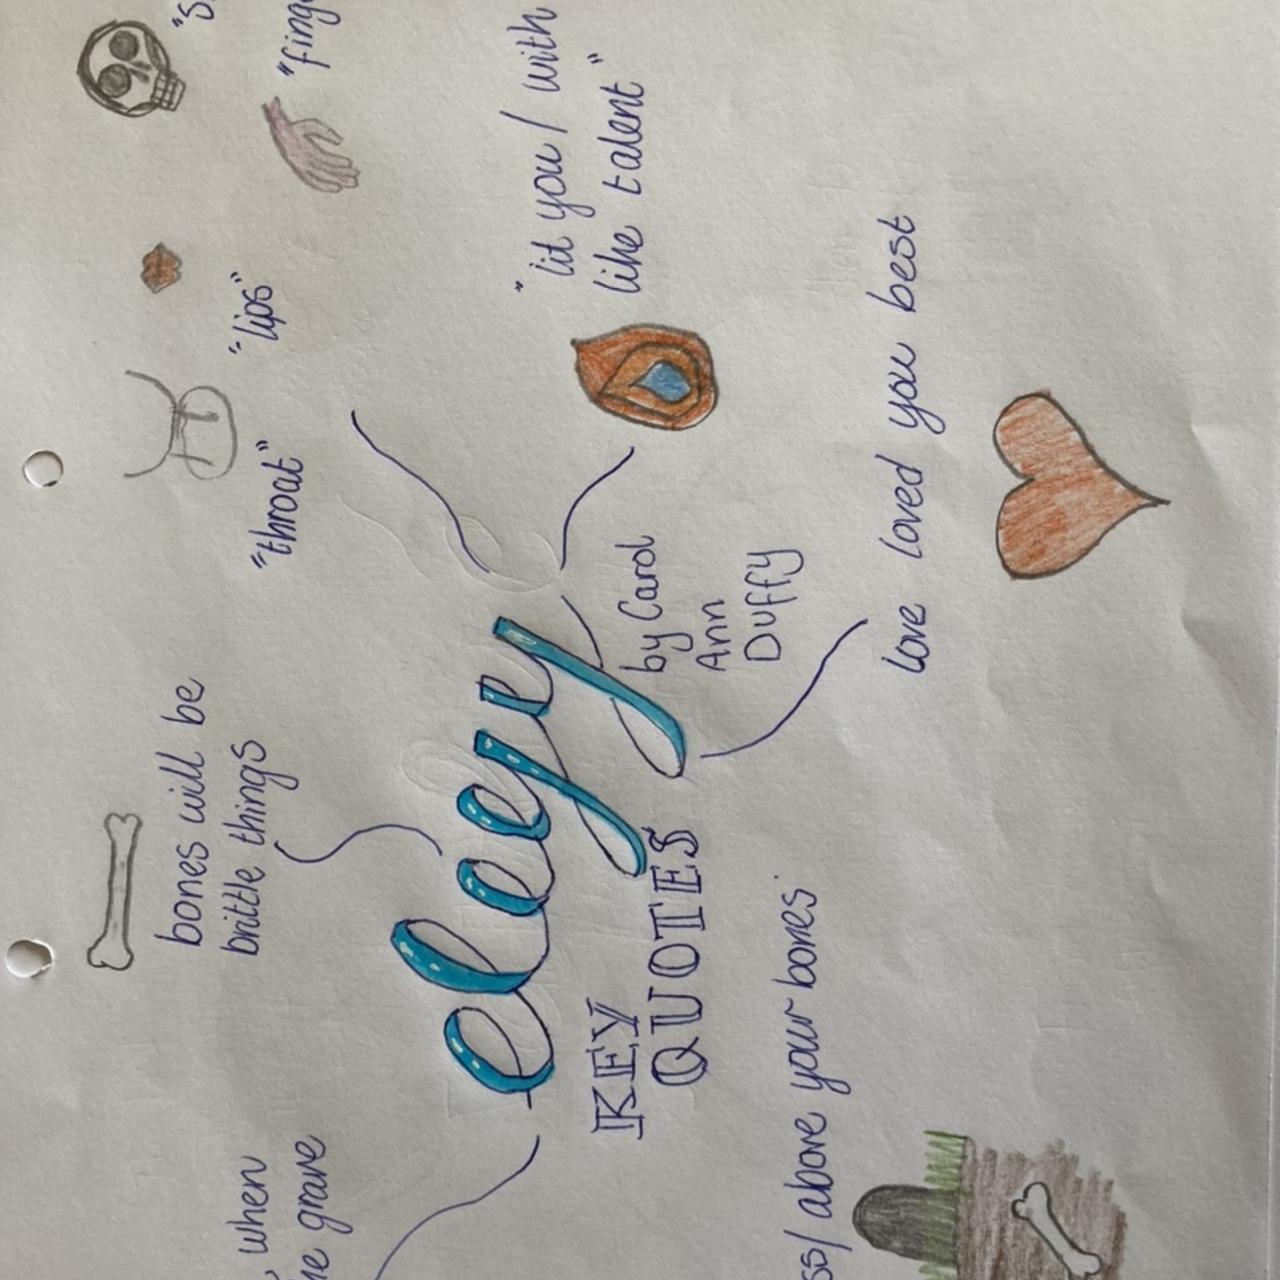 elegy
by Carol
Ann
Duffy
KEY
QUOTES
when
grave
bones will be
brittle things
"throat"
"lips"
"lit you / with
like talent"
love loved you best
/ above your bones